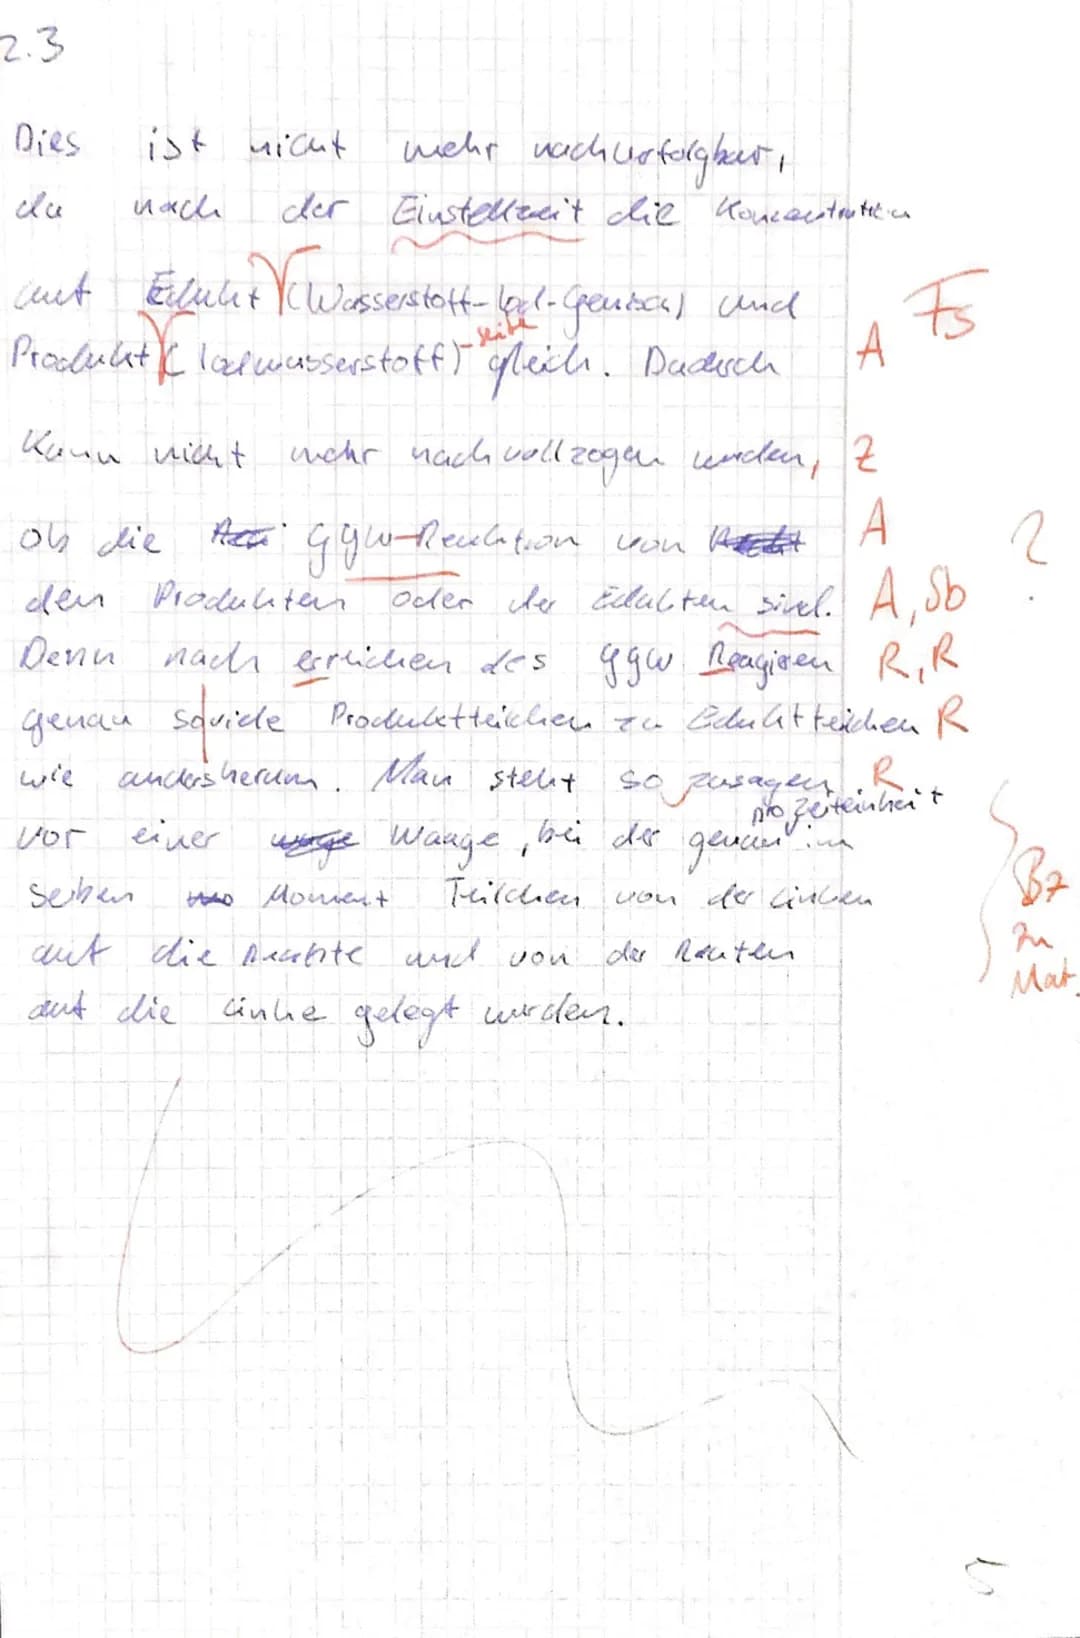 2.3
Dies ist nicht mehr nachverfolgbar,
da nach der Einstellzeit die Konzentration
auf Edukt (Wasserstoff-Iod-Gemisch) und Fs
-seite
Produkt (Iodwasserstoff) gleich. Dadurch A
Kann nicht mehr nachvollzogen werden, Z
ob die GGW-Reaktion von A ?
den Produkten oder der Edukten sind. A, Sb
Denn nach erreichen des GGW Reagiren R, R
genau soviele Produktteilchen zu Eduktteilchen R
wie andersherum. Man steht so zusagen R
pro Zeiteinheit
vor einer Waage, bei der genau im
selben Moment Teilchen von der Linken Bz
auf die Rechte und von der Rechten zu
auf die Linke gelegt werden. Mat.
5